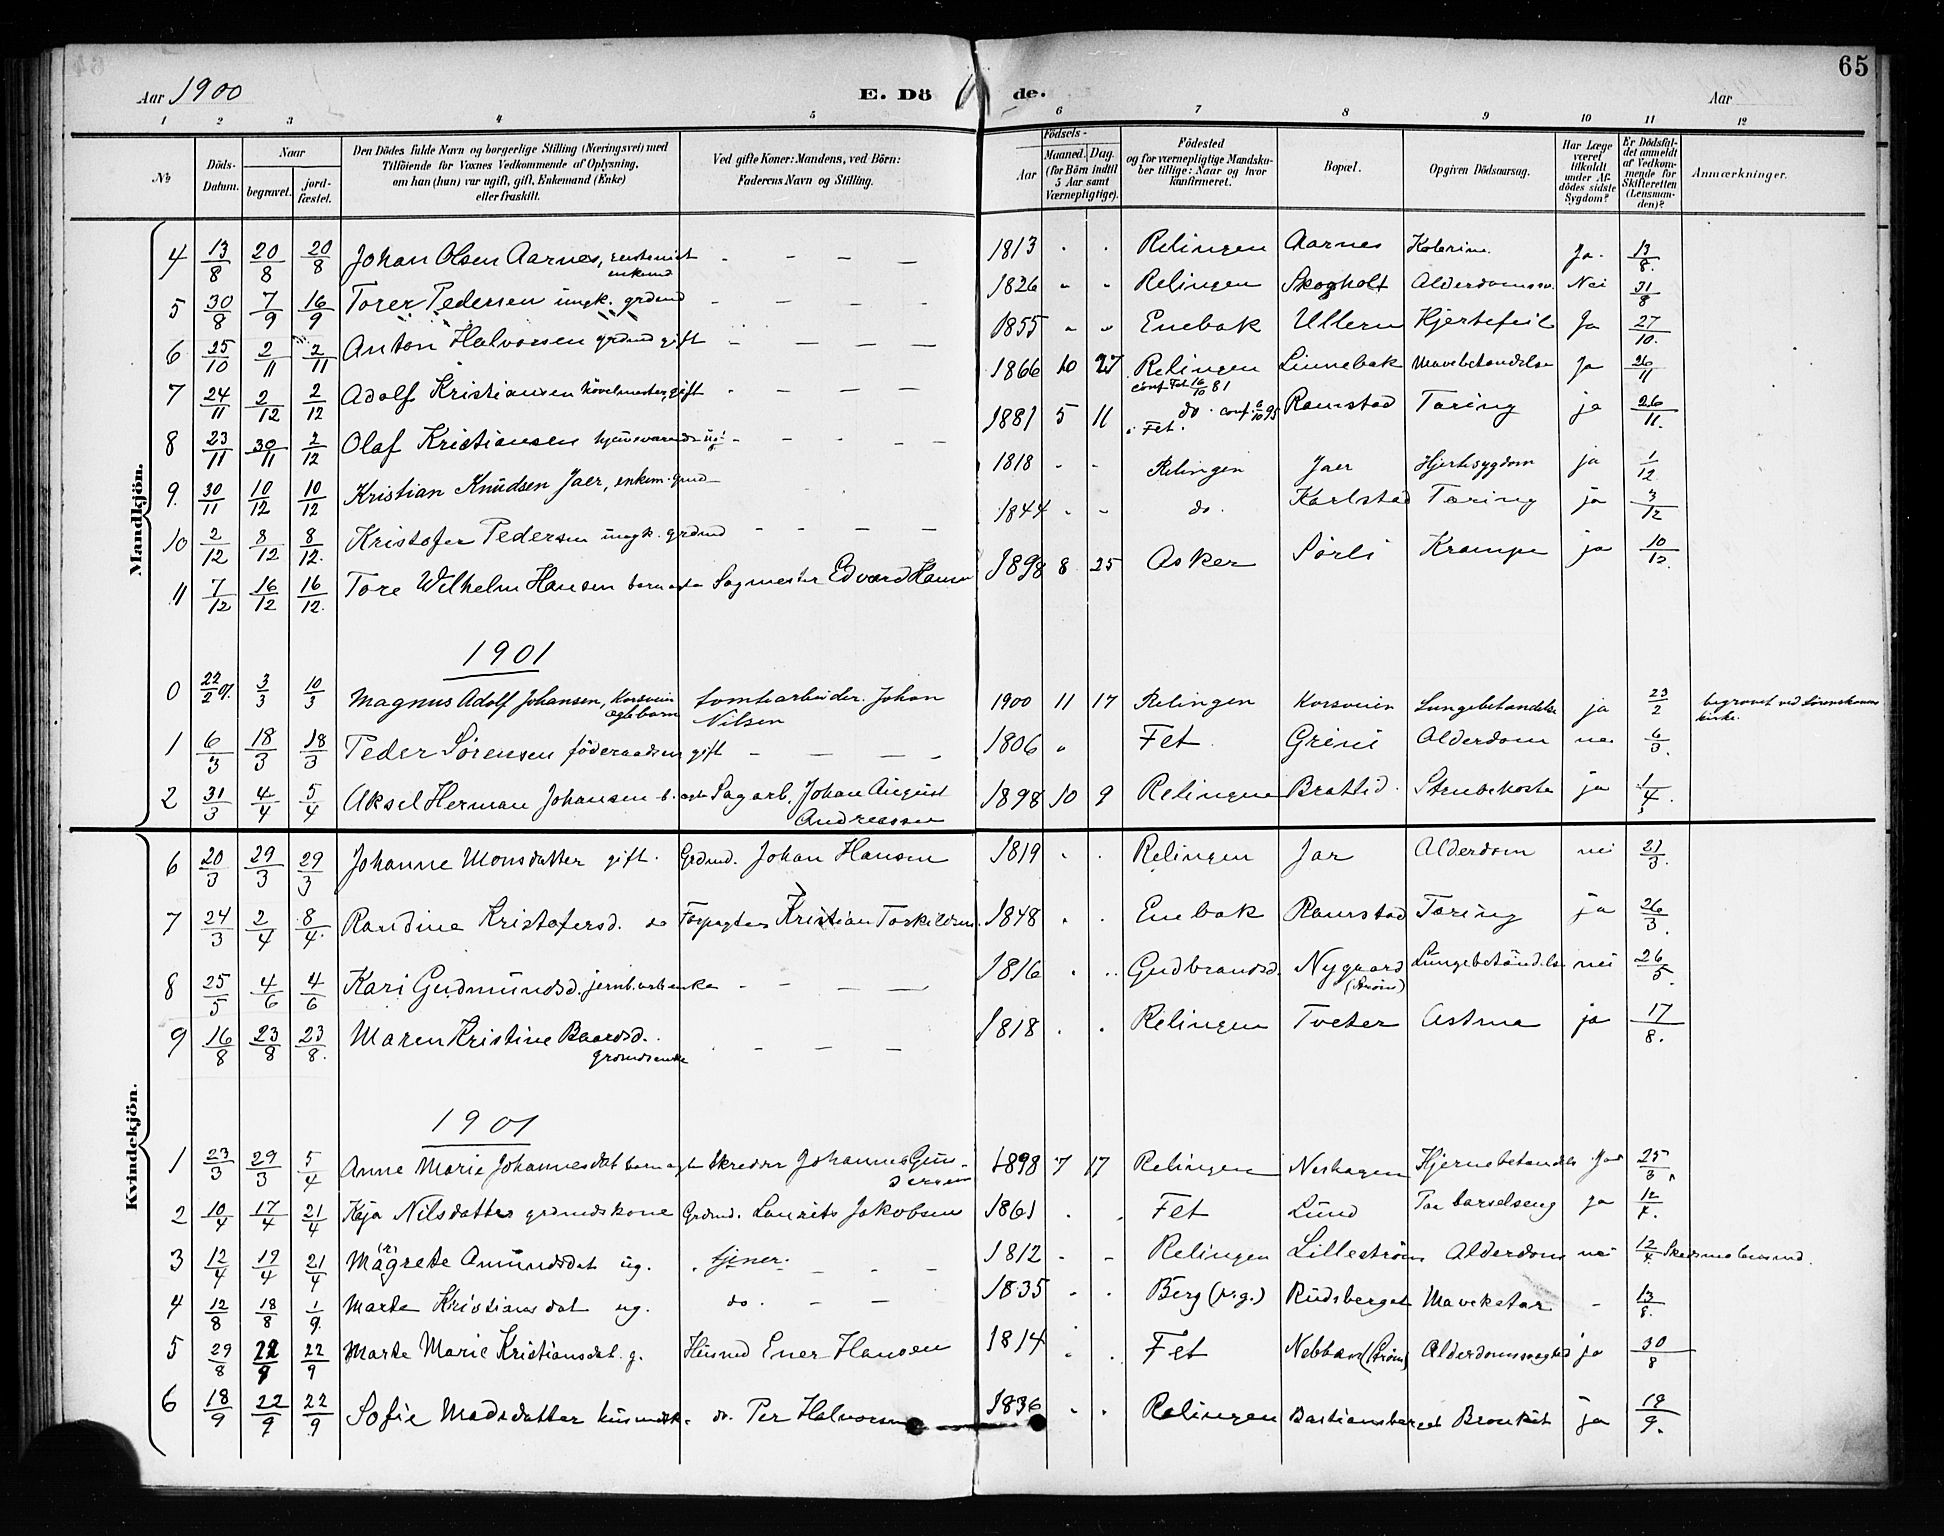 65
Aar 1900 E. Dö de. Aar
1 2 3 4 5 6 7 8 9 10 11 12
No Döds-Datum. Naar begravet. jord-fæstet. Den Dödes fulde Navn og borgerlige Stilling (Næringsvei) med Tilföiende for Voxnes Vedkommende af Oplysning, om han (hun) var ugift, gift, Enkemand (Enke) eller fraskilt. Ved gifte Koner: Mandens, ved Börn: Faderens Navn og Stilling. Födsels- Aar Maaned. Dag. (for Börn indtil 5 Aar samt Værnepligtige). Födested og for værnepligtige Mandska-ber tillige: Naar og hvor konfirmeret. Bopæl. Opgiven Dödsaarsag. Har Læge været tilkaldt under Af-dödes sidste Sygdom? Er Dödsfal-det anmeldt af Vedkom-mende for Skifteretten (Lensman-den)? Anmærkninger.
Mandkjön.
4 13/8 20/8 20/8 Johan Olsen Aarnes, enkemd - - - - 1813 Relingen Aarnes Ja. 13/8.
5 30/8 7/9 16/9 Torer Pedersen ungk. grdmd - - - - 1826 Relingen Skogholt Alderdomssv. Nei 31/8
6 25/10 2/11 2/11 Anton Halvorsen grdmd gift - - - - 1855 Enebak Ullern Hjertefeil Ja 27/10.
7 24/11 2/12 2/12 Adolf Kristiansen hövelmester, gift - - - - 1866 10 27 Relingen conf Fet 16/10 81 Linnebak Mavebetændelse Ja 26/11
8 23/11 30/11 2/12 Olaf Kristiansen hjemmeværende ug. - - - - 1881 5 11 do. conf 6/10 95 i Fet. Ramstad Tæring ja 26/11.
9. 30/11 10/12 10/12 Kristian Knudsen Jaer, enkem. grmd - - 1818 - - Relingen Jaer Hjertesygdom ja 1/12
10 2/12 8/12 8/12. Kristofer Pedersen ungk. grdmd - - - - 1844 - - do. Karlstad Tæring ja 3/12
11 7/12 16/12 16/12. Tore Wilhelm Hansen barn ægte Sagmester Edvard Hansen 1898 8 25 Asker Sörli Krampe ja 10/12.
1901
0 22/2 01. 3/3 10/3 Magnus Adolf Johansen, Korsveien ægte barn tomtearbeider. Johan Nilsen 1900 11 17 Relingen Korsveien Lungebetændelse ja 23/2 begravet ved Lörenskoven kirke.
1 6/3 18/3 18/3 Peder Sörensen föderaadsm gift - - - - 1806 Fet Greni Alderdom nei 6/3.
2 31/3 4/4 5/4 Aksel Herman Johansen b. ægte Sagarb. Johan August Andreassen 1898 10 9 Relingen Brattid. Strubehoste ja 1/4.
Kvindekjön.
6 20/3 29/3 29/3 Johanne Monsdatter gift. Grdmd. Johan Hansen 1819 Relingen Jar Alderdom nei 21/3.
7 24/3 2/4 8/4. Randine Kristofersd. do Forpagter Kristian Taskildsen 1848 Enebak Ramstad Tæring ja 26/3.
8 25/5 4/6 4/6 Kari Gudmundsd. jernb.arb enke - - - - 1816 Gudbrandsd. Nygaard (Ström) Lungebetændelse nei 26/5.
9 16/8 23/8 23/8. Maren Kristine Baardsd. grdmdsenke - - - - 1818 Relingen Tveter Astma ja 17/8.
1901
1 23/3 29/3 5/4 Anne Marie Johannesdat barn ægte Skredder Johannes Gundersen 1898 7 17 Relingen Neshagen Hjernebetændelse Ja 25/3.
2 10/4 17/4 21/4 Kaja Nilsdatter grdmdskone Grdmd. Laurits Jakobsen 1861 Fet Lund barselseng ja 12/4.
3 12/4 19/4 21/4 Magrete (r) Amundsdat ug. tjener. - - - 1812 - - Relingen Lilleström Alderdom nei 12/4
4 12/8 18/8 1/9. Marte Kristiansdat ug. do. - - 1835 Berg (v.g.) Rudsberget Mavekatar - 13/8.
5 29/8 22/9 22/9 Marte Marie Kristiansdat. g. Husmd Ener Hansen 1814 Fet Nebban (Ström) Alderdomssvaghed ja 30/8
6 18/9 22/9 22/9 Sofie Madsdatter husmdsk. do. Per Halvorsen 1836 Relingen Bastiansberget Bronkit ja 18/9.